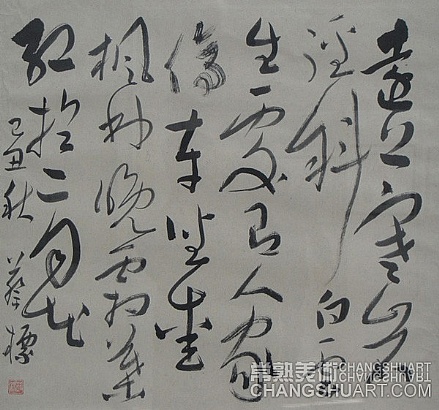 遠上寒山石
徑斜白雲
生處有人家
停車坐愛
楓林晚霜葉
紅於二月花
己丑秋 蔡標
常熟美術 CHANGSHUART
CHANGSHUART.COM